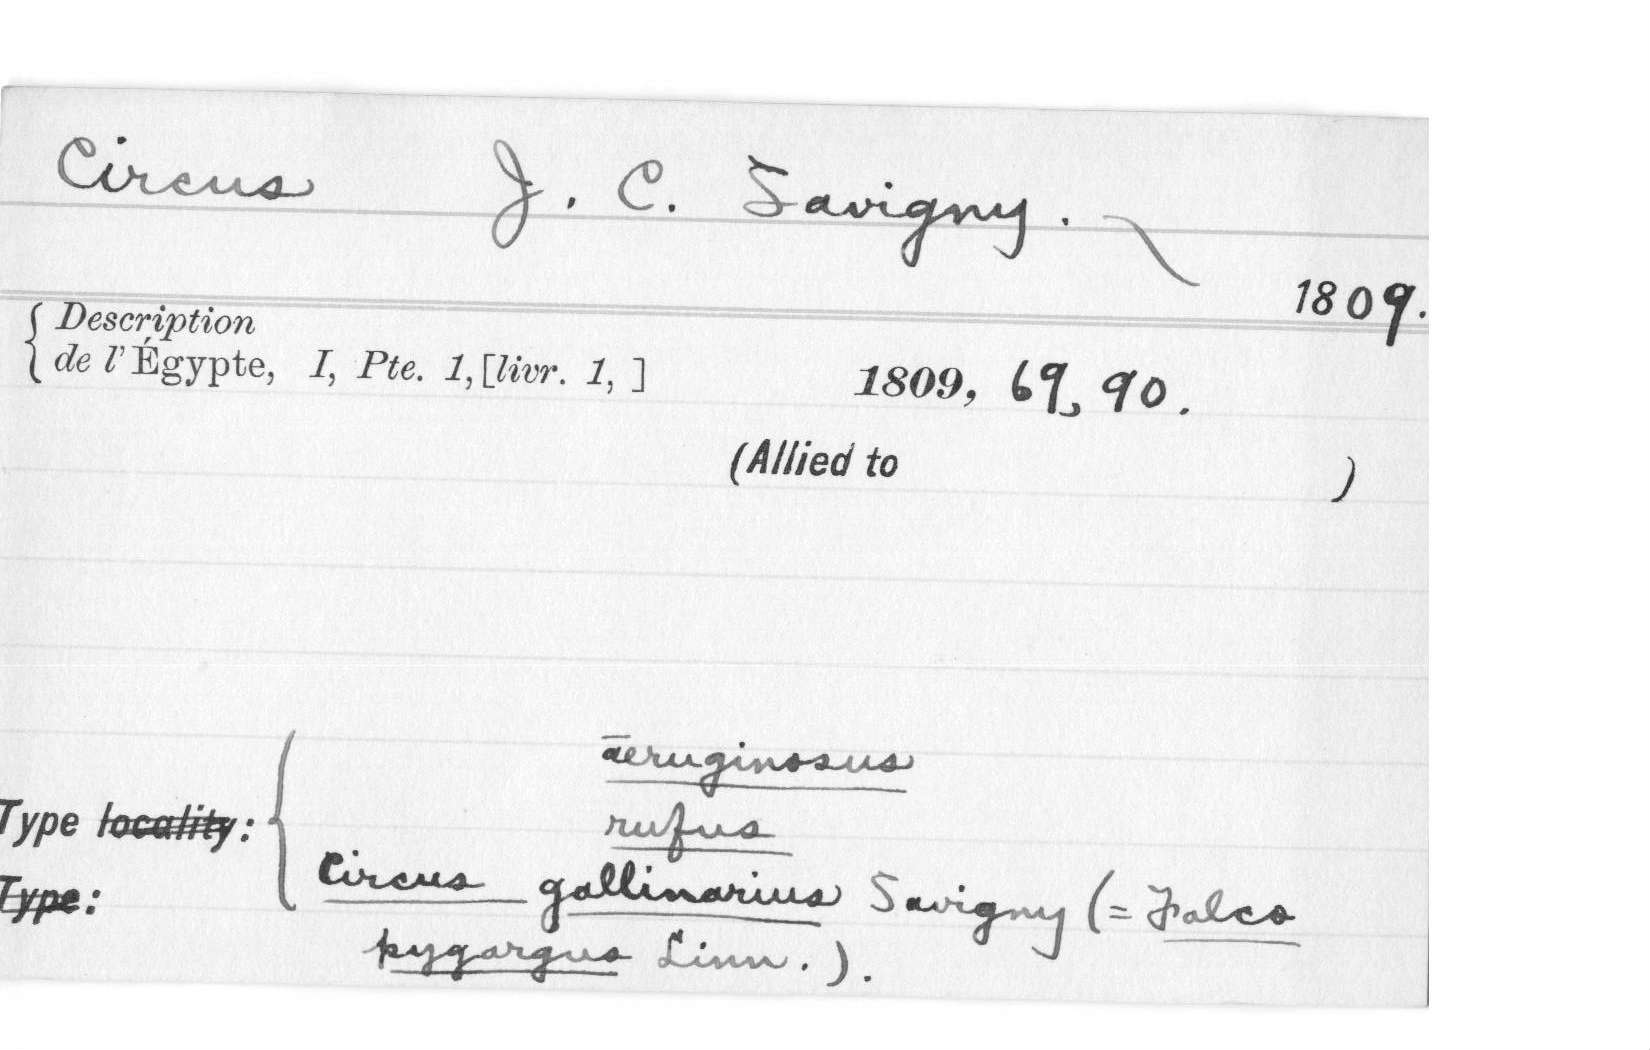 Circus J. C. Savigny.
1809.
Description
de l'Égypte, I, Pte. 1, [livr. 1, ] 1809, 69, 90.
(Allied to )
aeruginosus
rufus
Type locality:
Circus gallinarius Savigny (= Falco
Type:
pygargus Linn.).